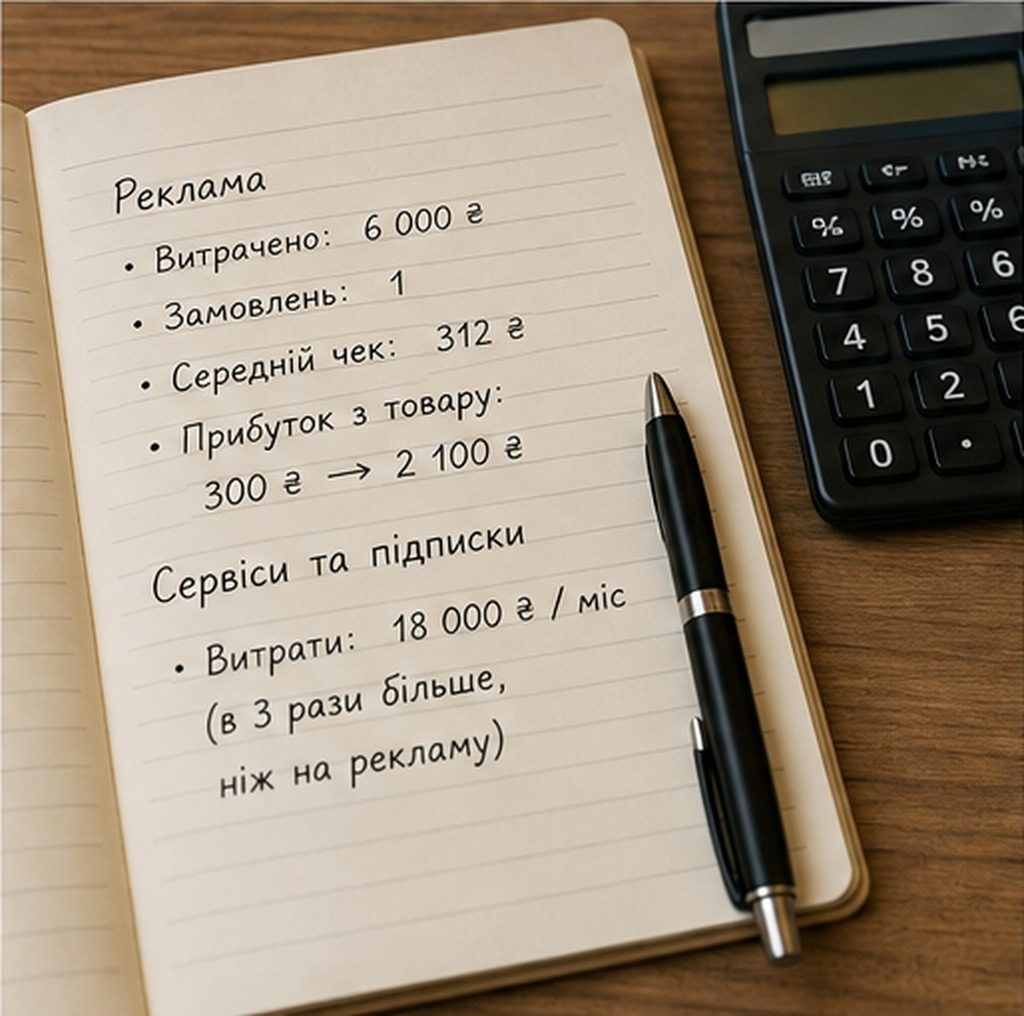 Реклама
• Витрачено: 6 000 ₴
• Замовлень: 1
• Середній чек: 312 ₴
• Прибуток з товару:
300 ₴ → 2 100 ₴
Сервіси та підписки
• Витрати: 18 000 ₴ / міс
(в 3 рази більше,
ніж на рекламу)
% % %
7 8 6
4 5 6
1 2
0 .